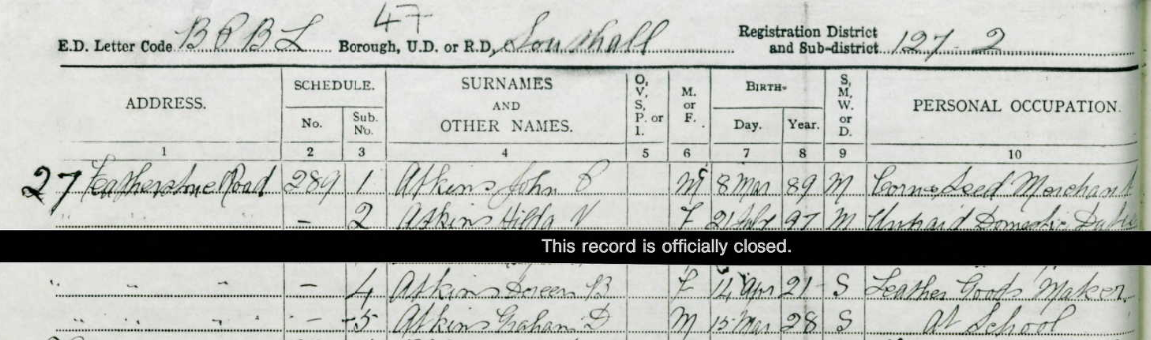 47
E.D. Letter Code BPBL Borough, U.D. or R.D. Southall Registration District and Sub-district 127-2
ADDRESS. SCHEDULE. No. Sub. No. SURNAMES AND OTHER NAMES. O, V, S, P. or I. M. or F. BIRTH- Day. Year. S, M, W. or D. PERSONAL OCCUPATION.
1 2 3 4 5 6 7 8 9 10
27 Featherstone Road 289 1 Atkins John M 8 Mar 89 M Corn & Seed Merchant
" " " - 2 Atkins Hilda V F 21 97 M Unpaid Domestic Duties
This record is officially closed.
" " " - 4 Atkins Doreen B F 14 Apr 21 S Leather Goods Maker
" " " - 5 Atkins Graham D M 15 Mar 28 S At School